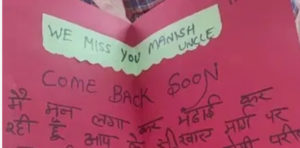 WE MISS YOU MANISH UNCLE
COME BACK SOON
मै मन लगा कर पढाई कर
रही हूँ आप के मार्ग पर